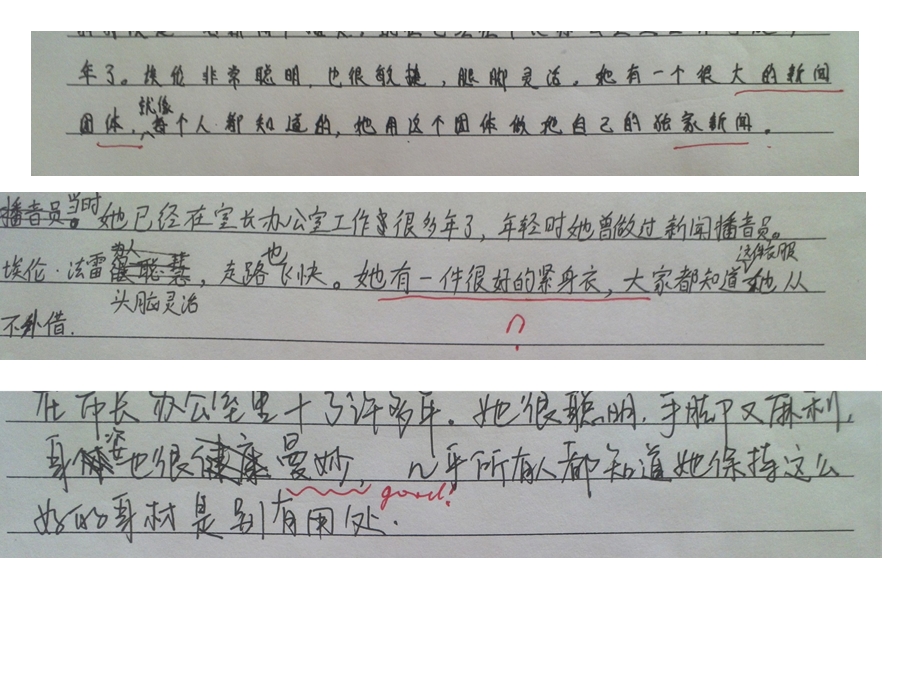 年了。埃伦非常聪明,也很敏捷,腿脚灵活。她有一个很大的新闻
团体,就像每个人都知道的,她用这个团体做把自己的独家新闻。
播音员。当时她已经在室长办公室工作很多年了,年轻时她曾做过新闻播音员。
埃伦·法雷办人头脑灵活,走路也飞快。她有一件很好的紧身衣,大家都知道这件衣服她从
不外借.
在市长办公室里干了许多年。她很聪明,手脚又麻利,
身姿也很曼妙,几乎所有人都知道她保持这么
good!
好的身材是别有用处.